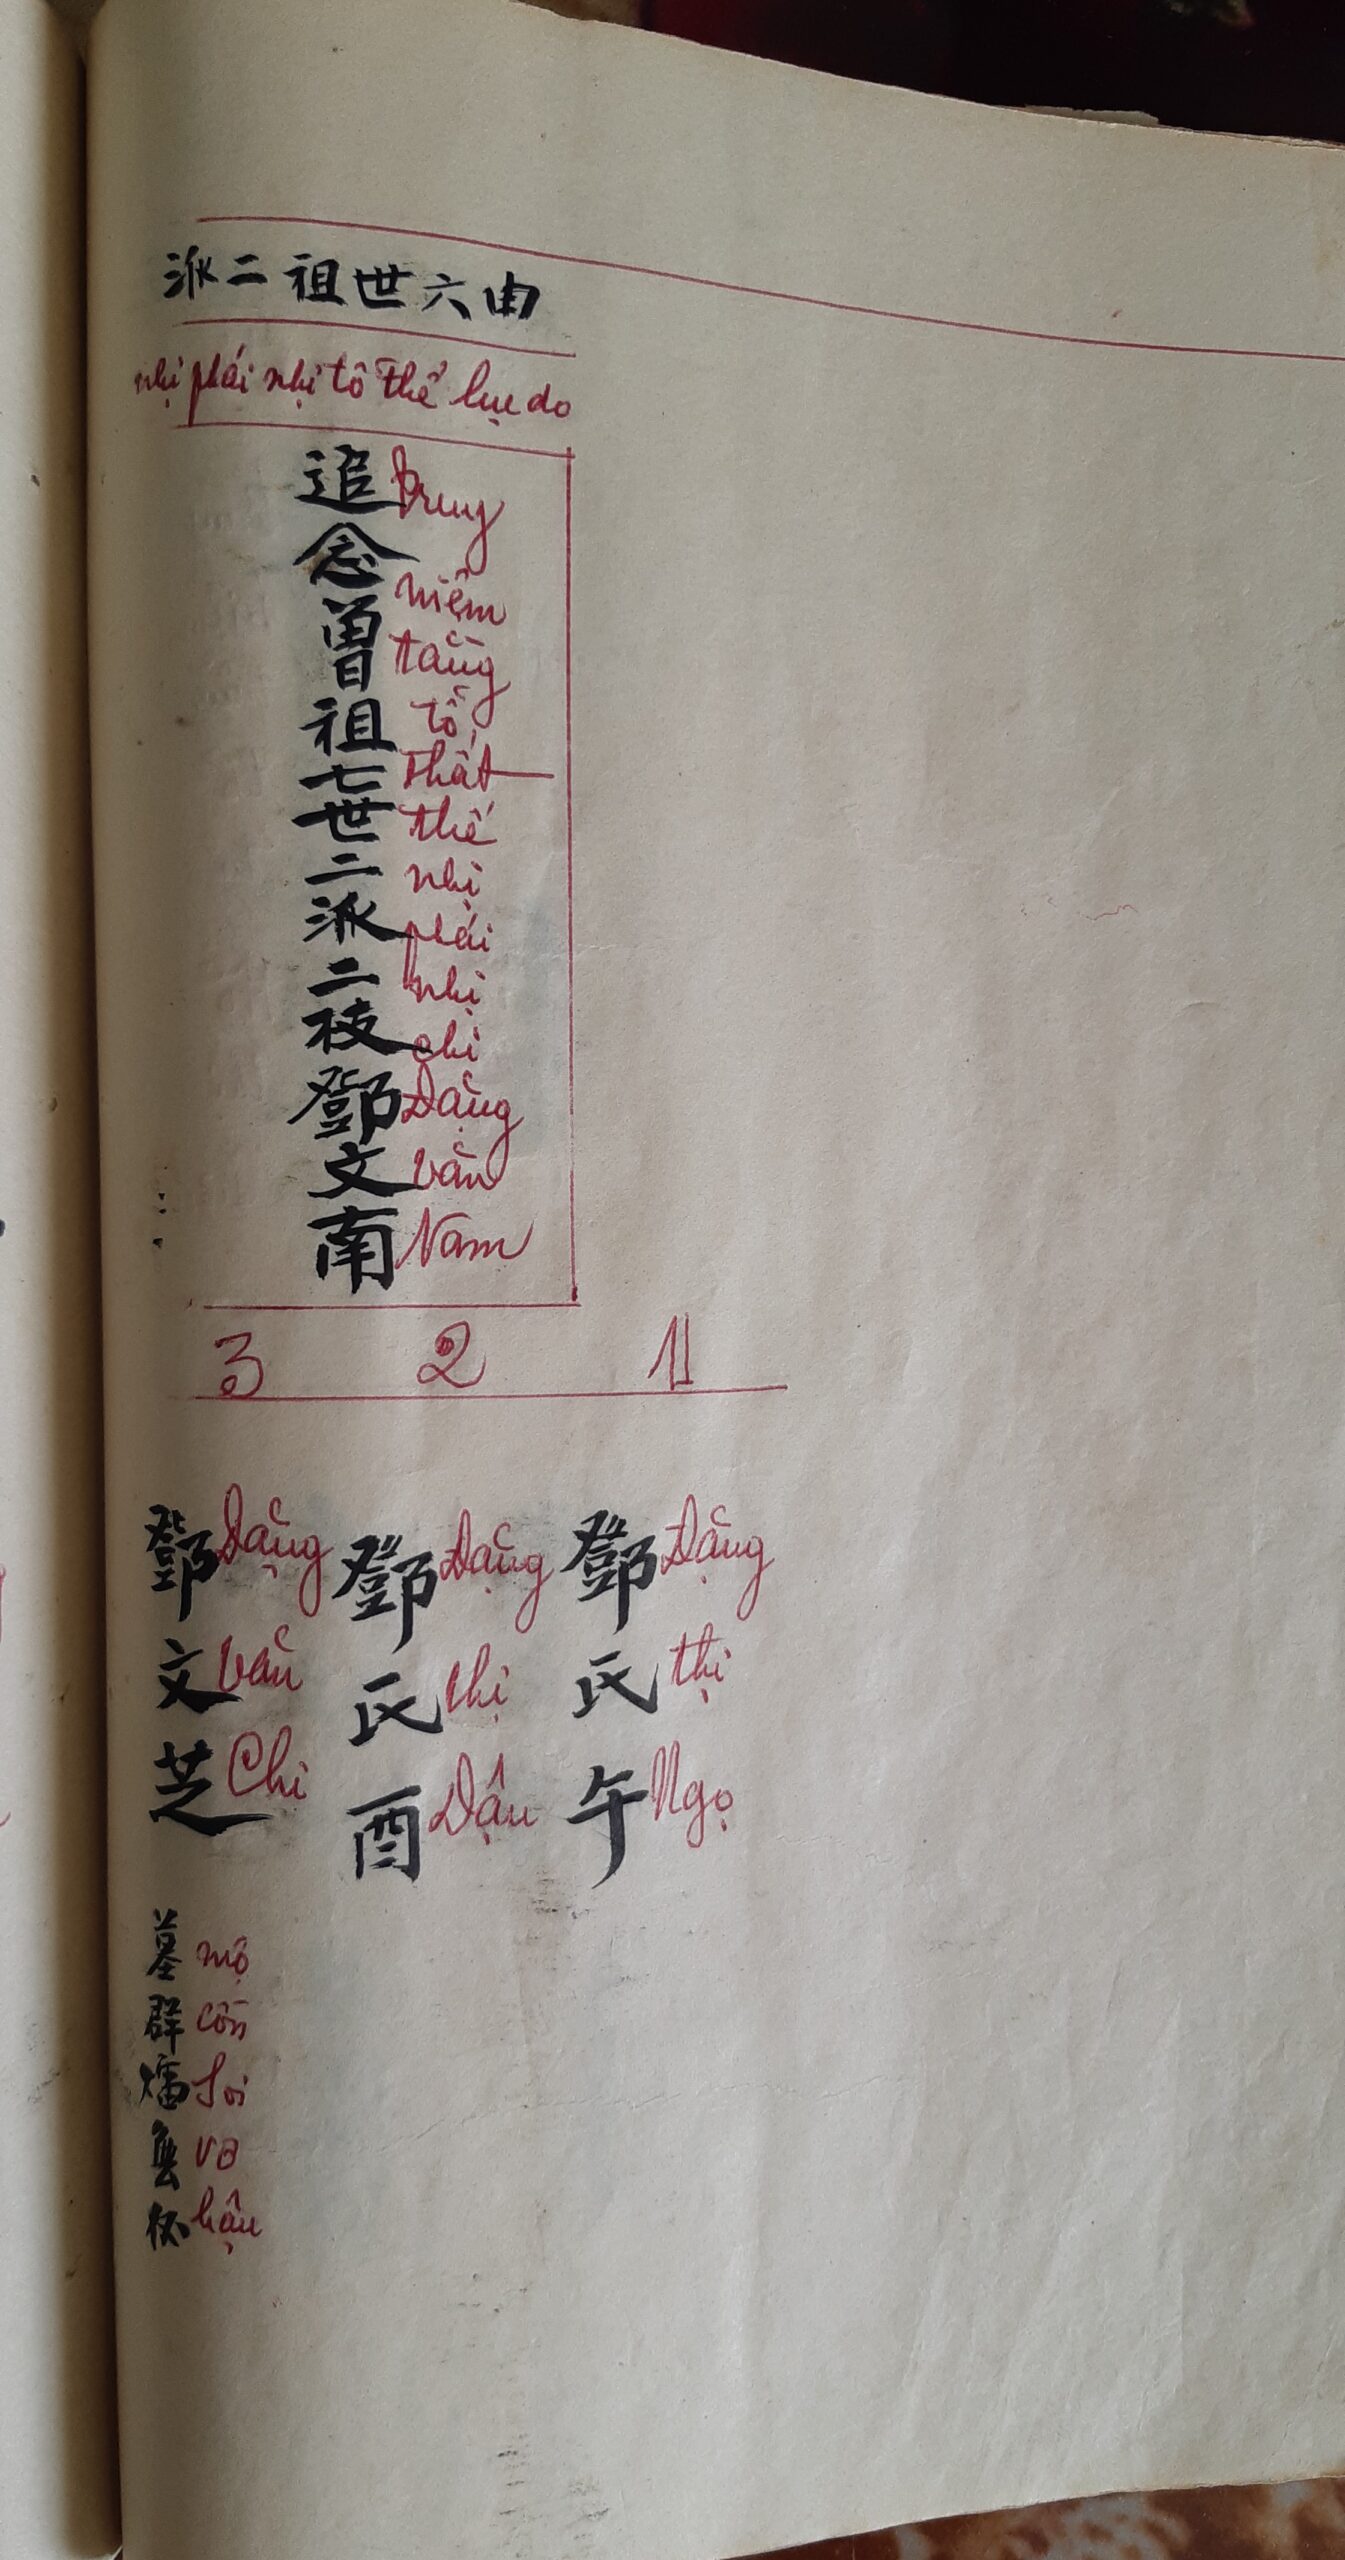 由六世祖二派
nhị phái nhị tô thế lục do
追念曾祖七世二派二枝鄧文南
Truy niệm tằng tổ thất thế nhị phái nhị chi Đặng văn Nam
3 2 1
鄧氏午
Đặng thị Ngọ
鄧氏酉
Đặng thị Dậu
鄧文芝
Đặng văn Chi
墓群𤐝無後
mộ cồn Soi vô hậu